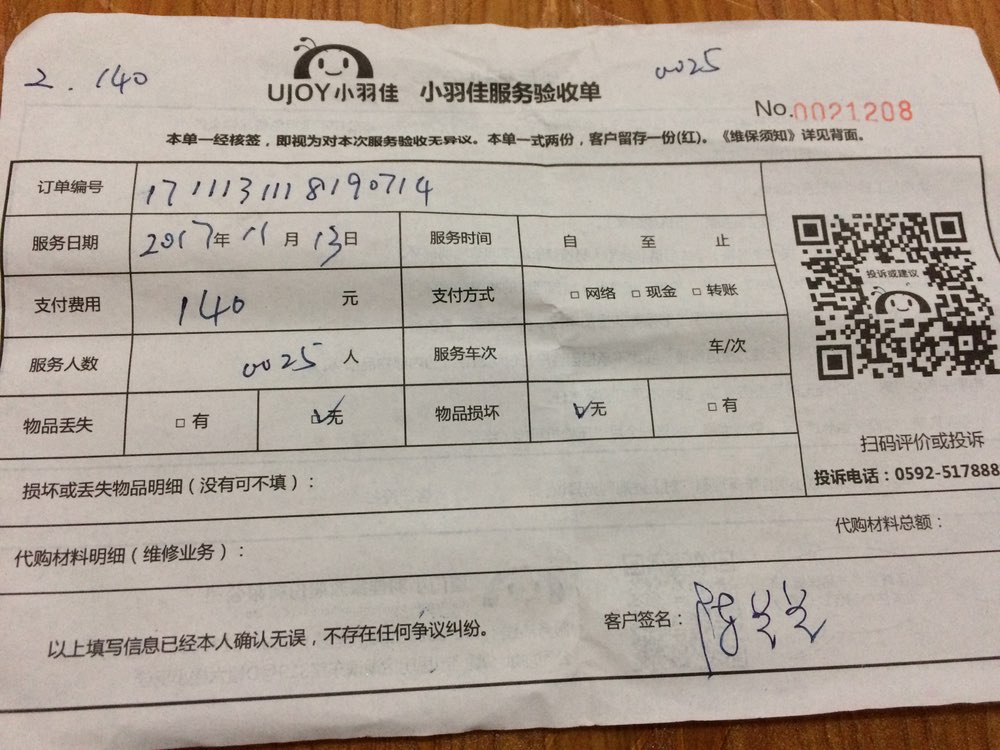 2. 140
0025
UJOY小羽佳 小羽佳服务验收单
No.0021208
本单一经核签，即视为对本次服务验收无异议。本单一式两份，客户留存一份(红)。《维保须知》详见背面。
订单编号 1711131118190714
服务日期 2017年 11 月 13日 服务时间 自 至 止
投诉或建议
支付费用 140 元 支付方式 □ 网络 □ 现金 □ 转账
服务人数 0025 人 服务车次 车/次
物品丢失 □ 有 ☑无 物品损坏 ☑无 □ 有
扫码评价或投诉
投诉电话：0592-517888
损坏或丢失物品明细（没有可不填）：
代购材料明细（维修业务）： 代购材料总额：
以上填写信息已经本人确认无误，不存在任何争议纠纷。 客户签名：